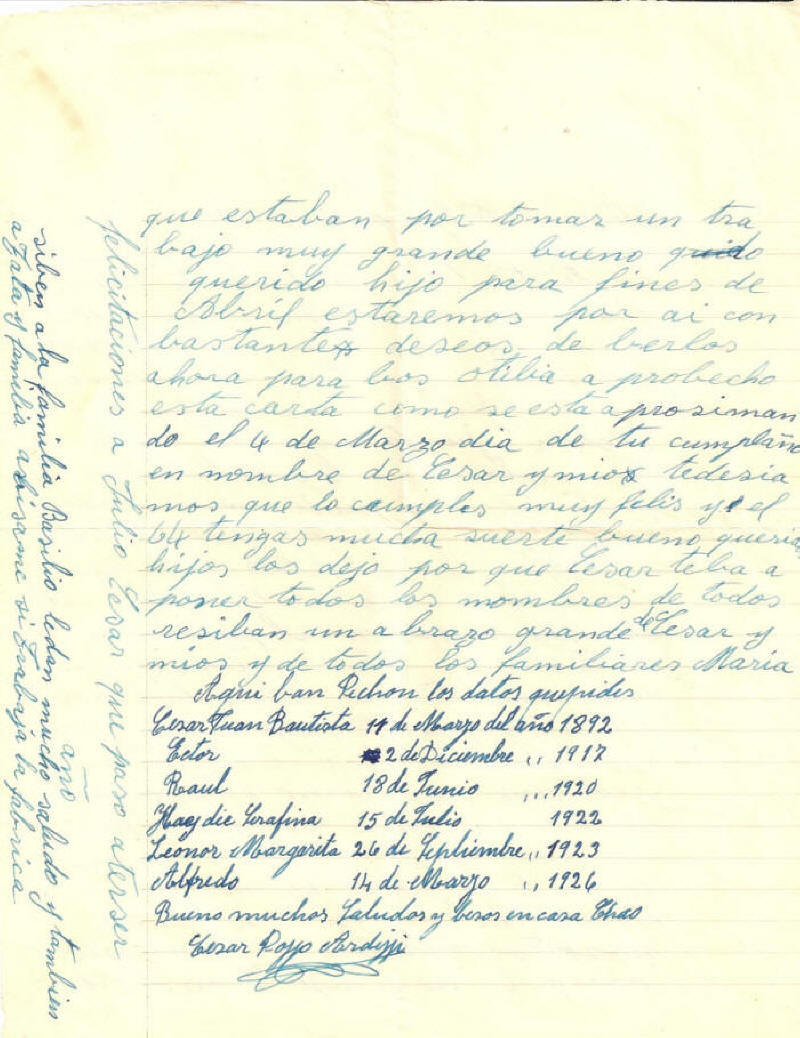 que estaban por tomar un tra
bajo muy grande bueno
querido hijo para fines de
Abril estaremos por ai con
bastante deseos de berlos
ahora para bos Otilia a probecho
esta carta como se esta aprosiman
do el 4 de Marzo dia de tu cumplaño
en nombre de Cesar y mio tedesia
mos que lo cumples muy felis y el
64 tengas mucha suerte bueno querido
hijos los dejo por que Cesar teba a
poner todos los nombres de todos
resiban un abrazo grande de Cesar y
mios y de todos los familiares Maria
Aqui ban Pichon los datos que pides
Cesar Juan Bautista 11 de Marzo del año 1892
Ector 2 de Diciembre ,, 1917
Raul 18 de Junio ,,, 1920
Haydie Serafina 15 de Julio 1922
Leonor Margarita 26 de Septiembre ,, 1923
Alfredo 14 de Marzo ,, 1926
Bueno muchos Saludos y besos en casa Chao
Cesar
felicitaciones a Julio Cesar que paso a terser
año
siben a la familia Basilio ledan mucho saludo y tambien
a Tata y familia abiseme si trabaja la fabrica